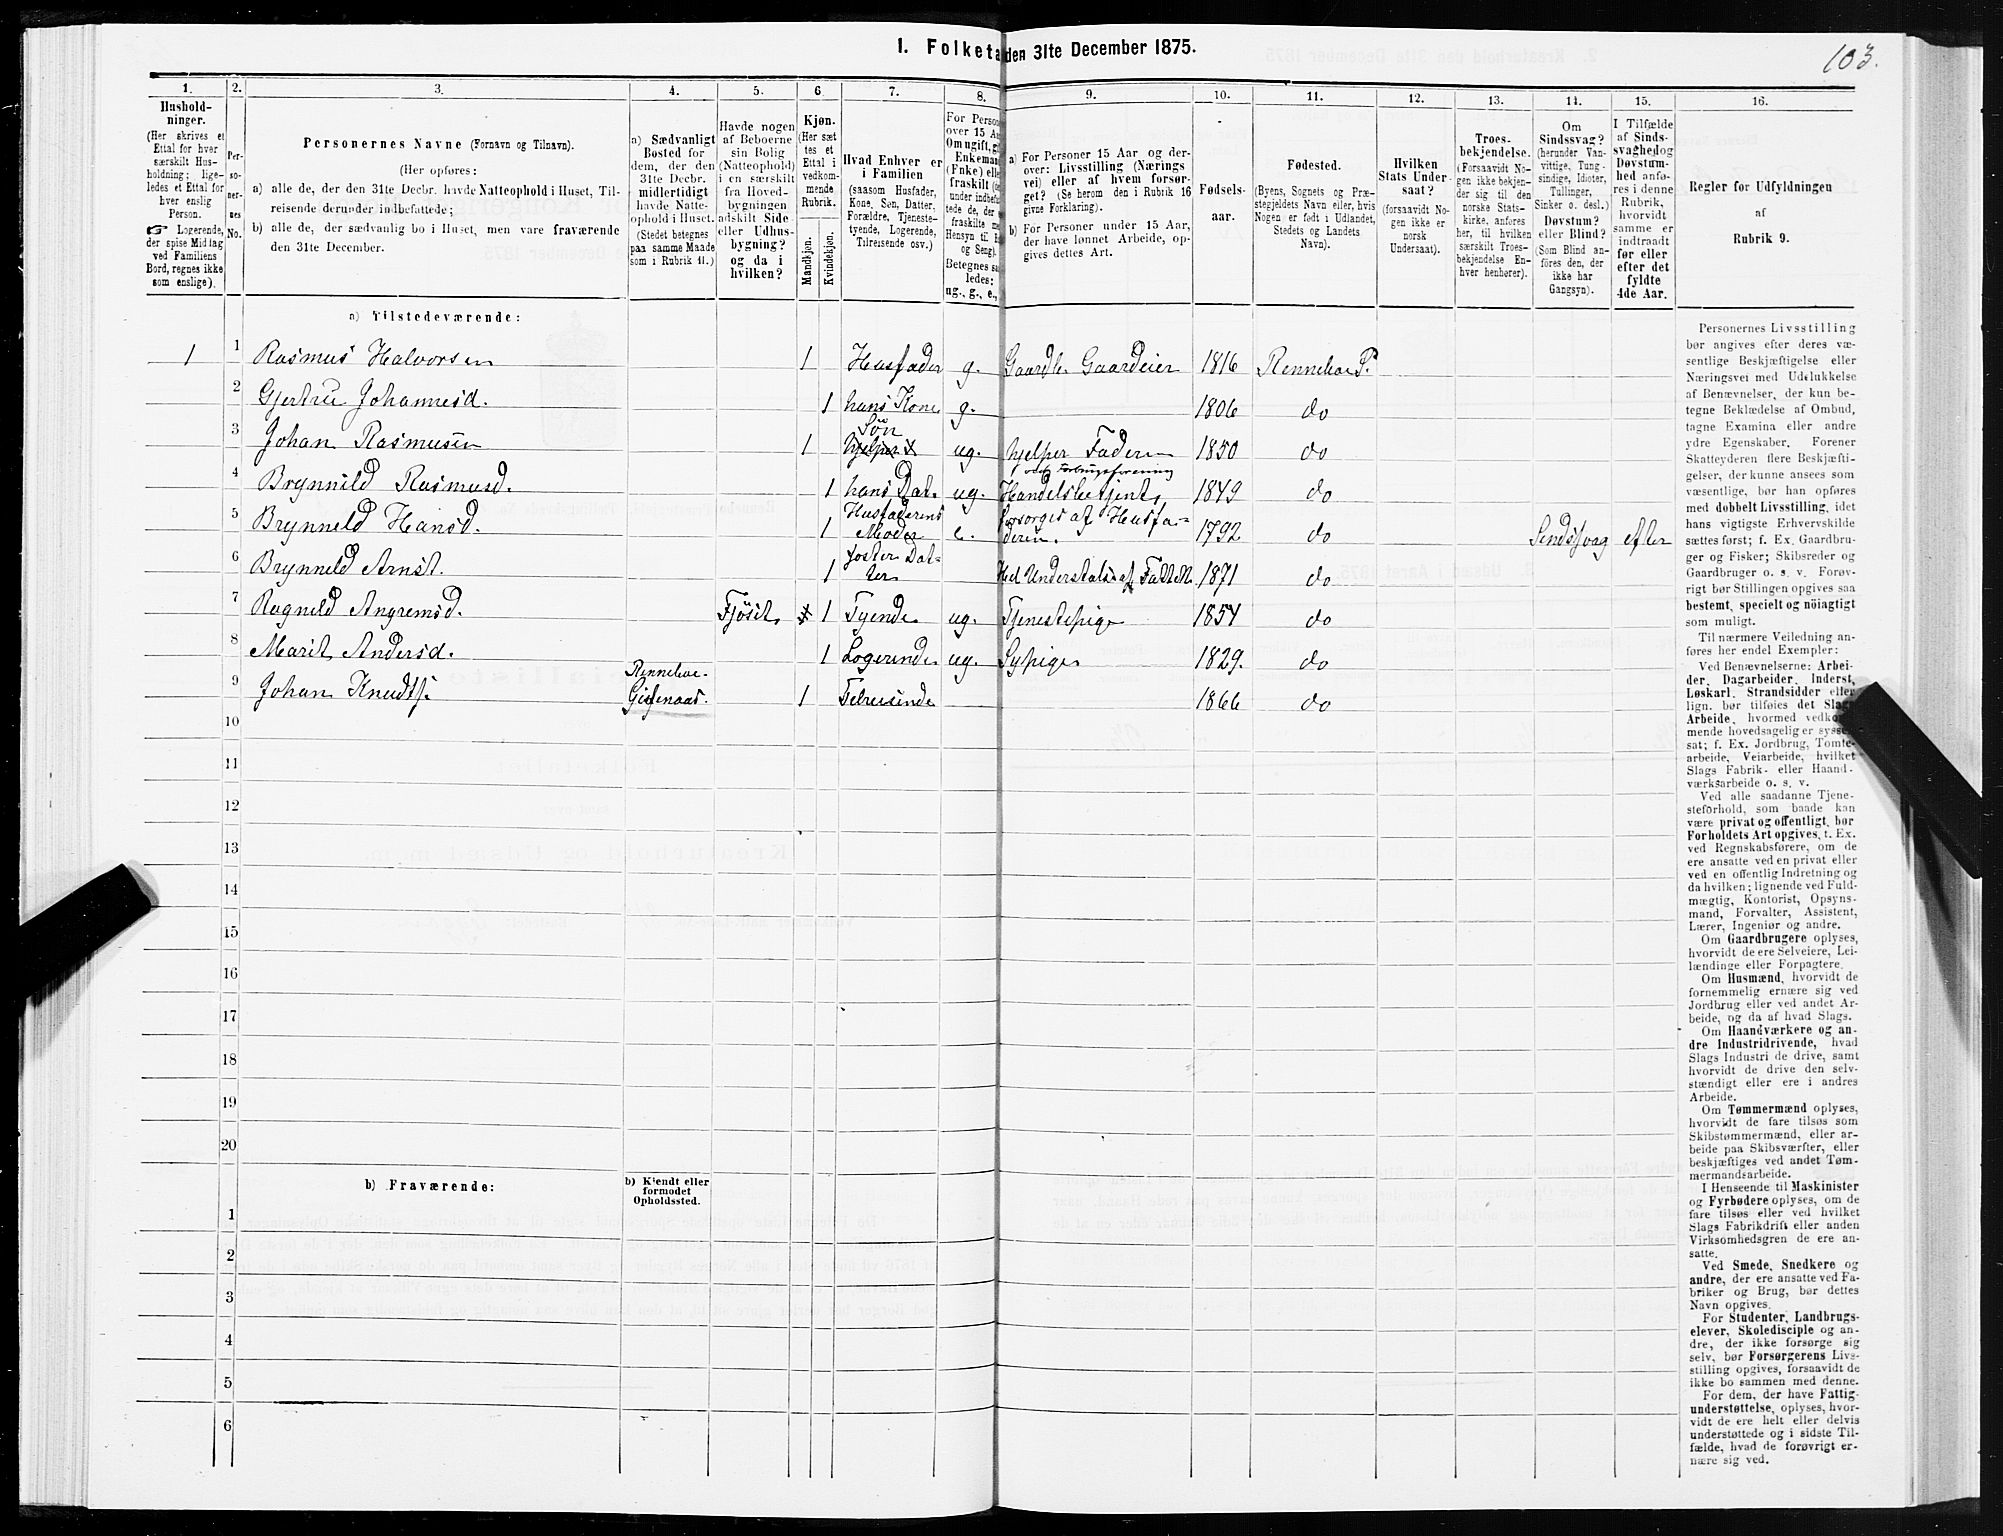 1. Folketa den 31te December 1875.
103.
1.
2.
3.
4.
5.
6.
7.
8.
9.
10.
11.
12.
13.
14.
15.
16.
Hushold-
ninger.
(Her skrives et
Ettal for hver
særskilt Hus-
holdning; lige-
ledes et Ettal for
hver enslig
Person.
☞ Logerende,
der spise Middag
ved Familiens
Bord, regnes ikke
som enslige).
Per-
so-
ner-
nes
No.
Personernes Navne (Fornavn og Tilnavn).
(Her opføres:
a) alle de, der den 31te Decbr. havde Natteophold i Huset, Til-
reisende derunder indbefattede;
b) alle de, der sædvanlig bo i Huset, men vare fraværende
den 31te December.
a) Sædvanligt
Bosted for
dem, der den
31te Decbr.
midlertidigt
havde Natte-
ophold i Huset.
(Stedet betegnes
paa samme Maade
som i Rubrik 11.)
Havde nogen
af Beboerne
sin Bolig
(Natteophold)
i en særskilt
fra Hoved-
bygningen
adskilt Side-
eller Udhus-
bygning?
og da i
hvilken?
Kjøn.
(Her sæt
tes et
Ettal i
vedkom-
mende
Rubrik.
Mandkjøn.
Kvindekjøn.
Hvad Enhver er
i Familien
(saasom Husfader,
Kone, Søn, Datter,
Forældre, Tjeneste-
tyende, Logerende,
Tilreisende osv.)
For Person
over 15 Aa
Om ugift, g
Enkeman
(Enke) elle
fraskilt (o
under indbef
tede de, der e
fraskilte m
Hensyn til B
og Seng).
Betegnes sa
ledes:
ug., g., e.,
a) For Personer 15 Aar og der-
over: Livsstilling (Nærings
vei) eller af hvem forsør-
get? (Se herom den i Rubrik 16
givne Forklaring).
b) For Personer under 15 Aar,
der have lønnet Arbeide, op-
gives dettes Art.
Fødsels-
aar.
Fødested.
(Byens, Sognets og Præ-
stegjeldets Navn eller, hvis
Nogen er født i Udlandet,
Stedets og Landets
Navn).
Hvilken
Stats Under-
saat?
(forsaavidt No-
gen ikke er
norsk
Undersaat).
Troes-
bekjendelse.
(Forsaavidt No-
gen ikke bekjen-
der sig til den
norske Stats-
kirke, anføres
her, til hvilken
særskilt Troes-
bekjendelse En-
hver henhører).
Om
Sindssvag?
(herunder Van-
vittige, Tung-
sindige, Idioter,
Tullinger,
Sinker o. desl.)
Døvstum?
eller Blind?
(Som Blind an-
føres den, der
ikke har
Gangsyn).
I Tilfælde
af Sinds-
svaghed og
Døvstum-
hed anfø-
res i denne
Rubrik,
hvorvidt
samme er
indtraadt
før eller
efter det
fyldte
4de Aar.
Regler for Udfyldningen
af
Rubrik 9.
a) Tilstedeværende:
1 1 Rasmus Halvorsen 1 Husfader g. Gaardbr Gaardeier 1816 Renneboe P.
2 Gjertru Johannesd. 1 hans Kone g. 1806 do
Søn
3 Johan Rasmusen 1 hjelper ug. hjelper Faderen 1850 do
ved Forbrugsforening
4 Brynnild Rasmusd. 1 hans Dat. ug. Handelsbetjent, 1849 do
Husfaderens Forsørges af Husfa-
5 Brynneld Hansd. 1 Moder e. deren. 1792 do Sindssvag efter
foster Dat-
6 Brynneld Arnst. 1 ter Hel Understøls af FattiV. 1871 do
7 Ragneld Angremsd. Fjøset 1 Tyende ug. Tjenestepige 1854 do
8 Marit Andersd. 1 Logerende ug. Sypige 1829. do
Renneboe
9 Johan Knudts. 1 Telreisende 1866 do
10
11
12
13
14
15
16
17
18
19
20
b) Fraværende:
b) Kjendt eller
formodet
Opholdssted.
1
2
3
4
5
6
Personernes Livsstilling
bør angives efter deres væ-
sentlige Beskjæftigelse eller
Næringsvei med Udelukkelse
af Benævnelser, der kun be-
tegne Beklædelse af Ombud,
tagne Examina eller andre
ydre Egenskaber. Forener
Skatteyderen flere Beskjæfti-
gelser, der kunne ansees som
væsentlige, bør han opføres
med dobbelt Livsstilling, idet
hans vigtigste Erhvervskilde
sættes først; f. Ex. Gaardbru-
ger og Fisker; Skibsreder og
Gaardbruger o. s. v. Forøv-
rigt bør Stillingen opgives saa
bestemt, specielt og nøiagtigt
som muligt.
Til nærmere Veiledning an-
føres her endel Exempler:
Ved Benævnelserne: Arbei-
der, Dagarbeider, Inderst,
Løskarl, Strandsidder eller
lign. bør tilføies det Slags
Arbeide, hvormed vedkom-
mende hovedsagelig er syssel-
sat; f. Ex. Jordbrug, Tomte-
arbeide, Veiarbeide, hvilket
Slags Fabrik- eller Haand-
værksarbeide o. s. v.
Ved alle saadanne Tjene-
steforhold, som baade kan
være privat og offentligt, bør
Forholdets Art opgives, t. Ex.
ved Regnskabsførere, om de
ere ansatte ved en privat eller
ved en offentlig Indretning og
da hvilken; lignende ved Fuld-
mægtig, Kontorist, Opsyns-
mand, Forvalter, Assistent,
Lærer, Ingeniør og andre.
Om Gaardbrugere oplyses,
hvorvidt de ere Selveiere, Lei-
lændinge eller Forpagtere.
Om Husmænd, hvorvidt de
fornemmelig ernære sig ved
Jordbrug eller ved andet Ar-
beide, og da af hvad Slags.
Om Haandværkere og an-
dre Industridrivende, hvad
Slags Industri de drive, samt
hvorvidt de drive den selv-
stændigt eller ere i andres
Arbeide.
Om Tømmermænd oplyses,
hvorvidt de fare tilsøs som
Skibstømmermænd, eller ar-
beide paa Skibsværfter, eller
beskjæftiges ved andet Tøm-
mermandsarbeide.
I Henseende til Maskinister
og Fyrbødere oplyses, om de
fare tilsøs eller ved hvilket
Slags Fabrikdrift eller anden
Virksomhedsgren de ere an-
satte.
Ved Smede, Snedkere og
andre, der ere ansatte ved Fa-
briker og Brug, bør dettes
Navn opgives.
For Studenter, Landbrugs-
elever, Skoledisciple og an-
dre, der ikke forsørge sig
selv, bør Forsørgerens Livs-
stilling opgives, forsaavidt de
ikke bo sammen med denne.
For dem, der have Fattig-
understøttelse, oplyses, hvor-
vidt de ere helt eller delvis
understøttede og i sidste Til-
fælde, hvad de forøvrigt er-
nære sig ved.